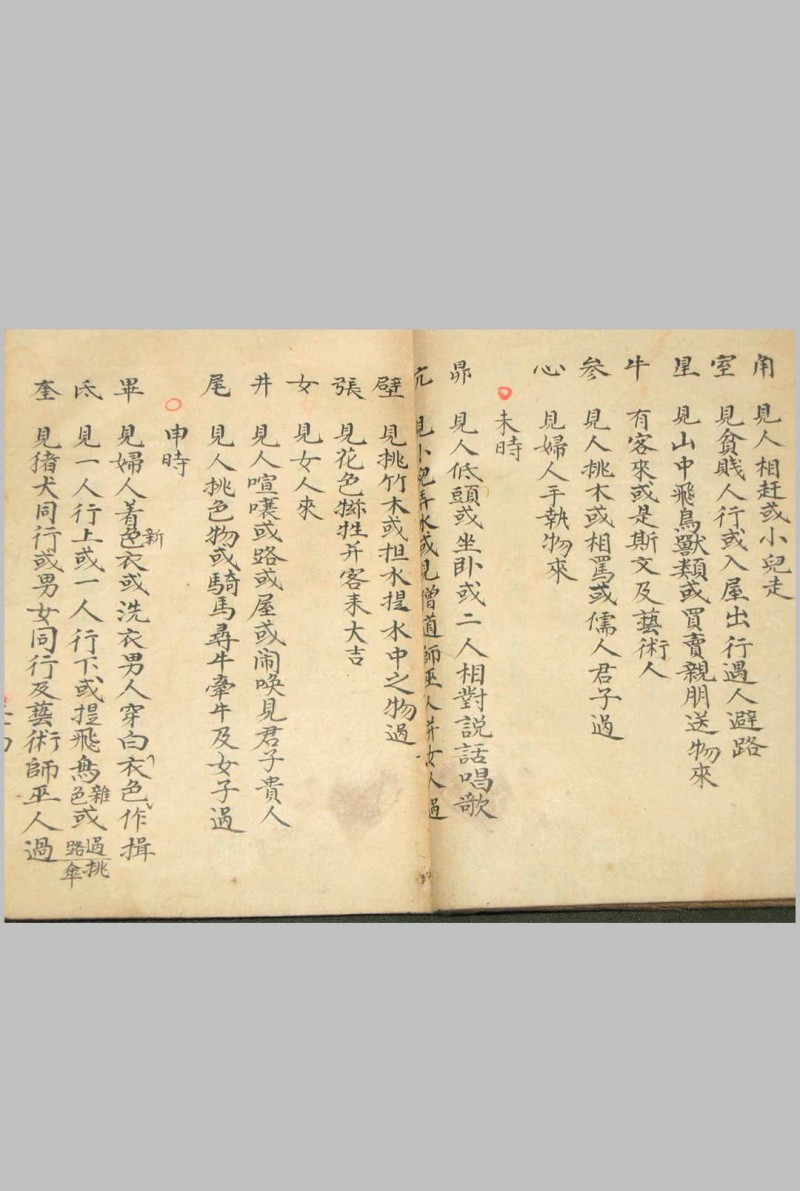 角　見人相赶或小兒走
室　見貧賤人行或入屋出行遇人避路
星　見山中飛鳥獸類或買賣親朋送物來
牛　有客來或是斯文及藝術人
參　見人挑木或相罵或儒人君子過
心　見婦人手執物來
未時
昴　見人低頭或坐卧或二人相對説話唱歌
亢　見小兒弄水或見僧道師巫人并女人過
壁　見挑竹木或担水提水中之物過
張　見花色牲并客來大吉
女　見女人來
井　見人喧嚷或路或屋或闹唤見君子貴人
尾　見人挑色物或騎馬尋牛牽牛及女子過
申時
畢　見婦人着新色衣或洗衣男人穿白衣色作揖
氐　見一人行上或一人行下或提飛鳥雜色或過路挑傘
奎　見猪犬同行或男女同行及藝術師巫人過